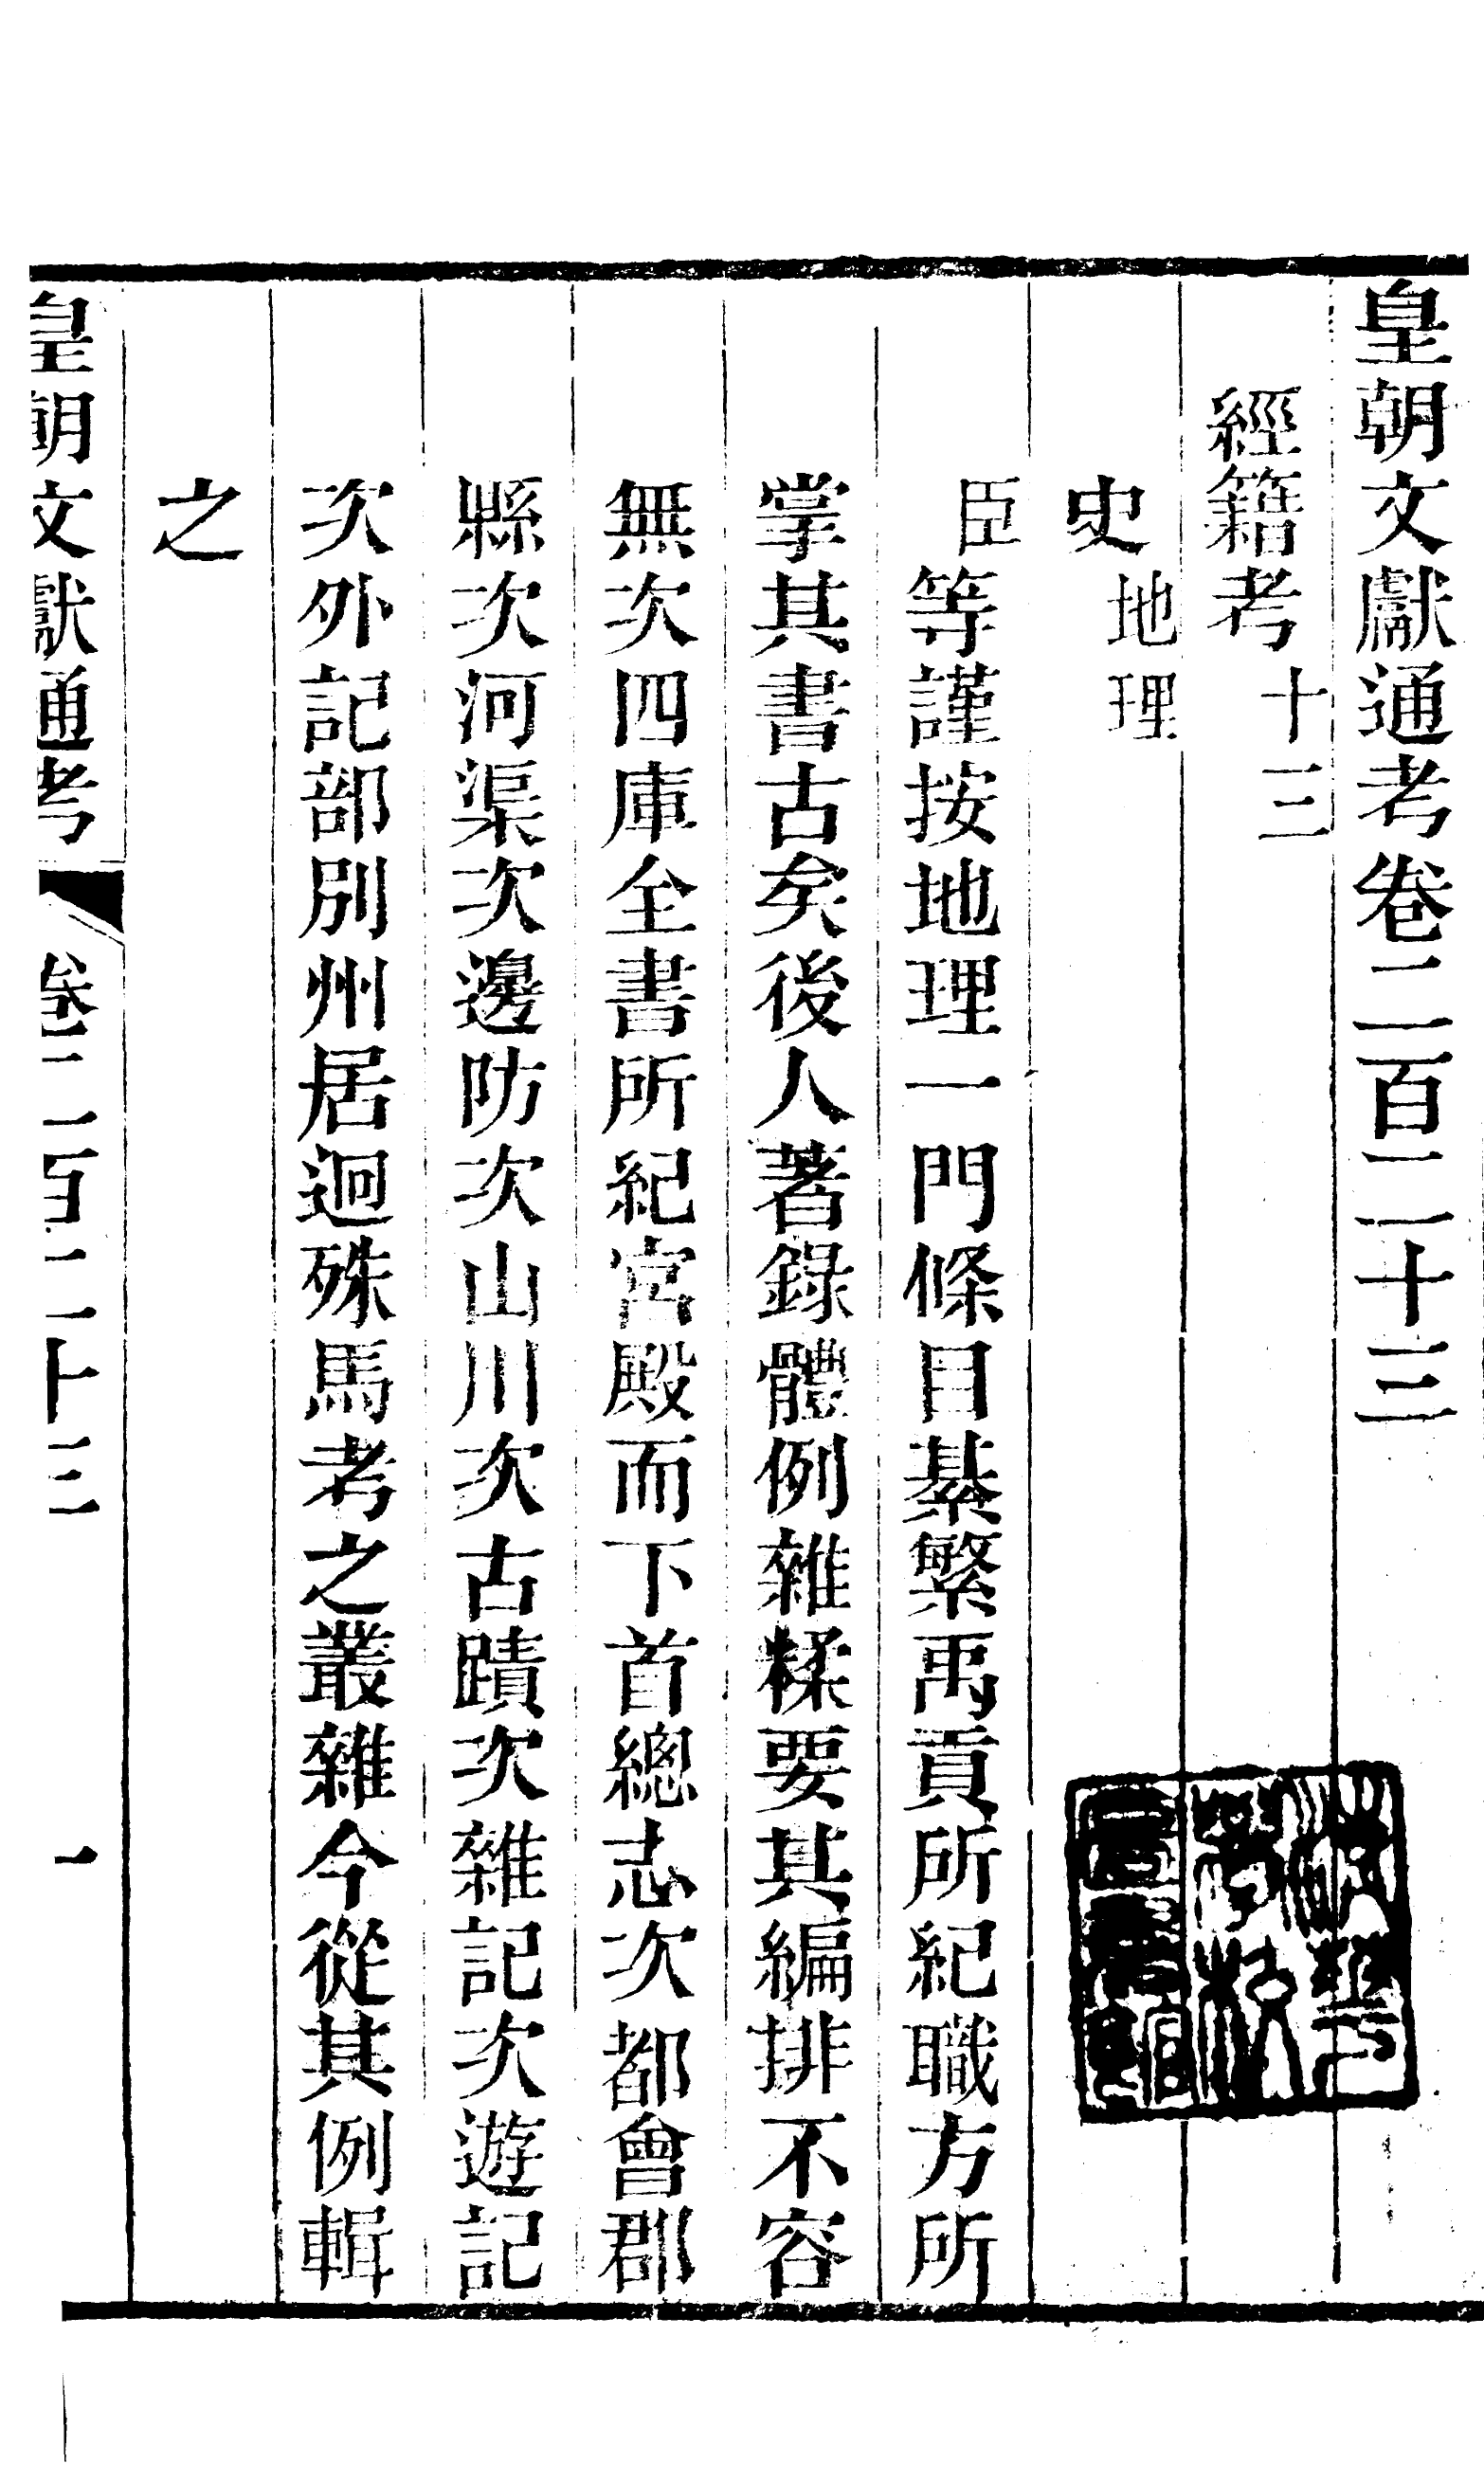 皇朝文獻通考卷二百二十三
經籍考十三
史地理
臣等謹按地理一門條目綦繁禹貢所紀職方所
掌其書古矣後人著錄體例雜糅要其編排不容
無次四庫全書所紀宮殿而下首總志次都會郡
縣次河渠次邊防次山川次古蹟次雜記次遊記
次外記部別州居迥殊馬考之叢雜今從其例輯
之
皇朝文獻通考 卷二百二十三 一